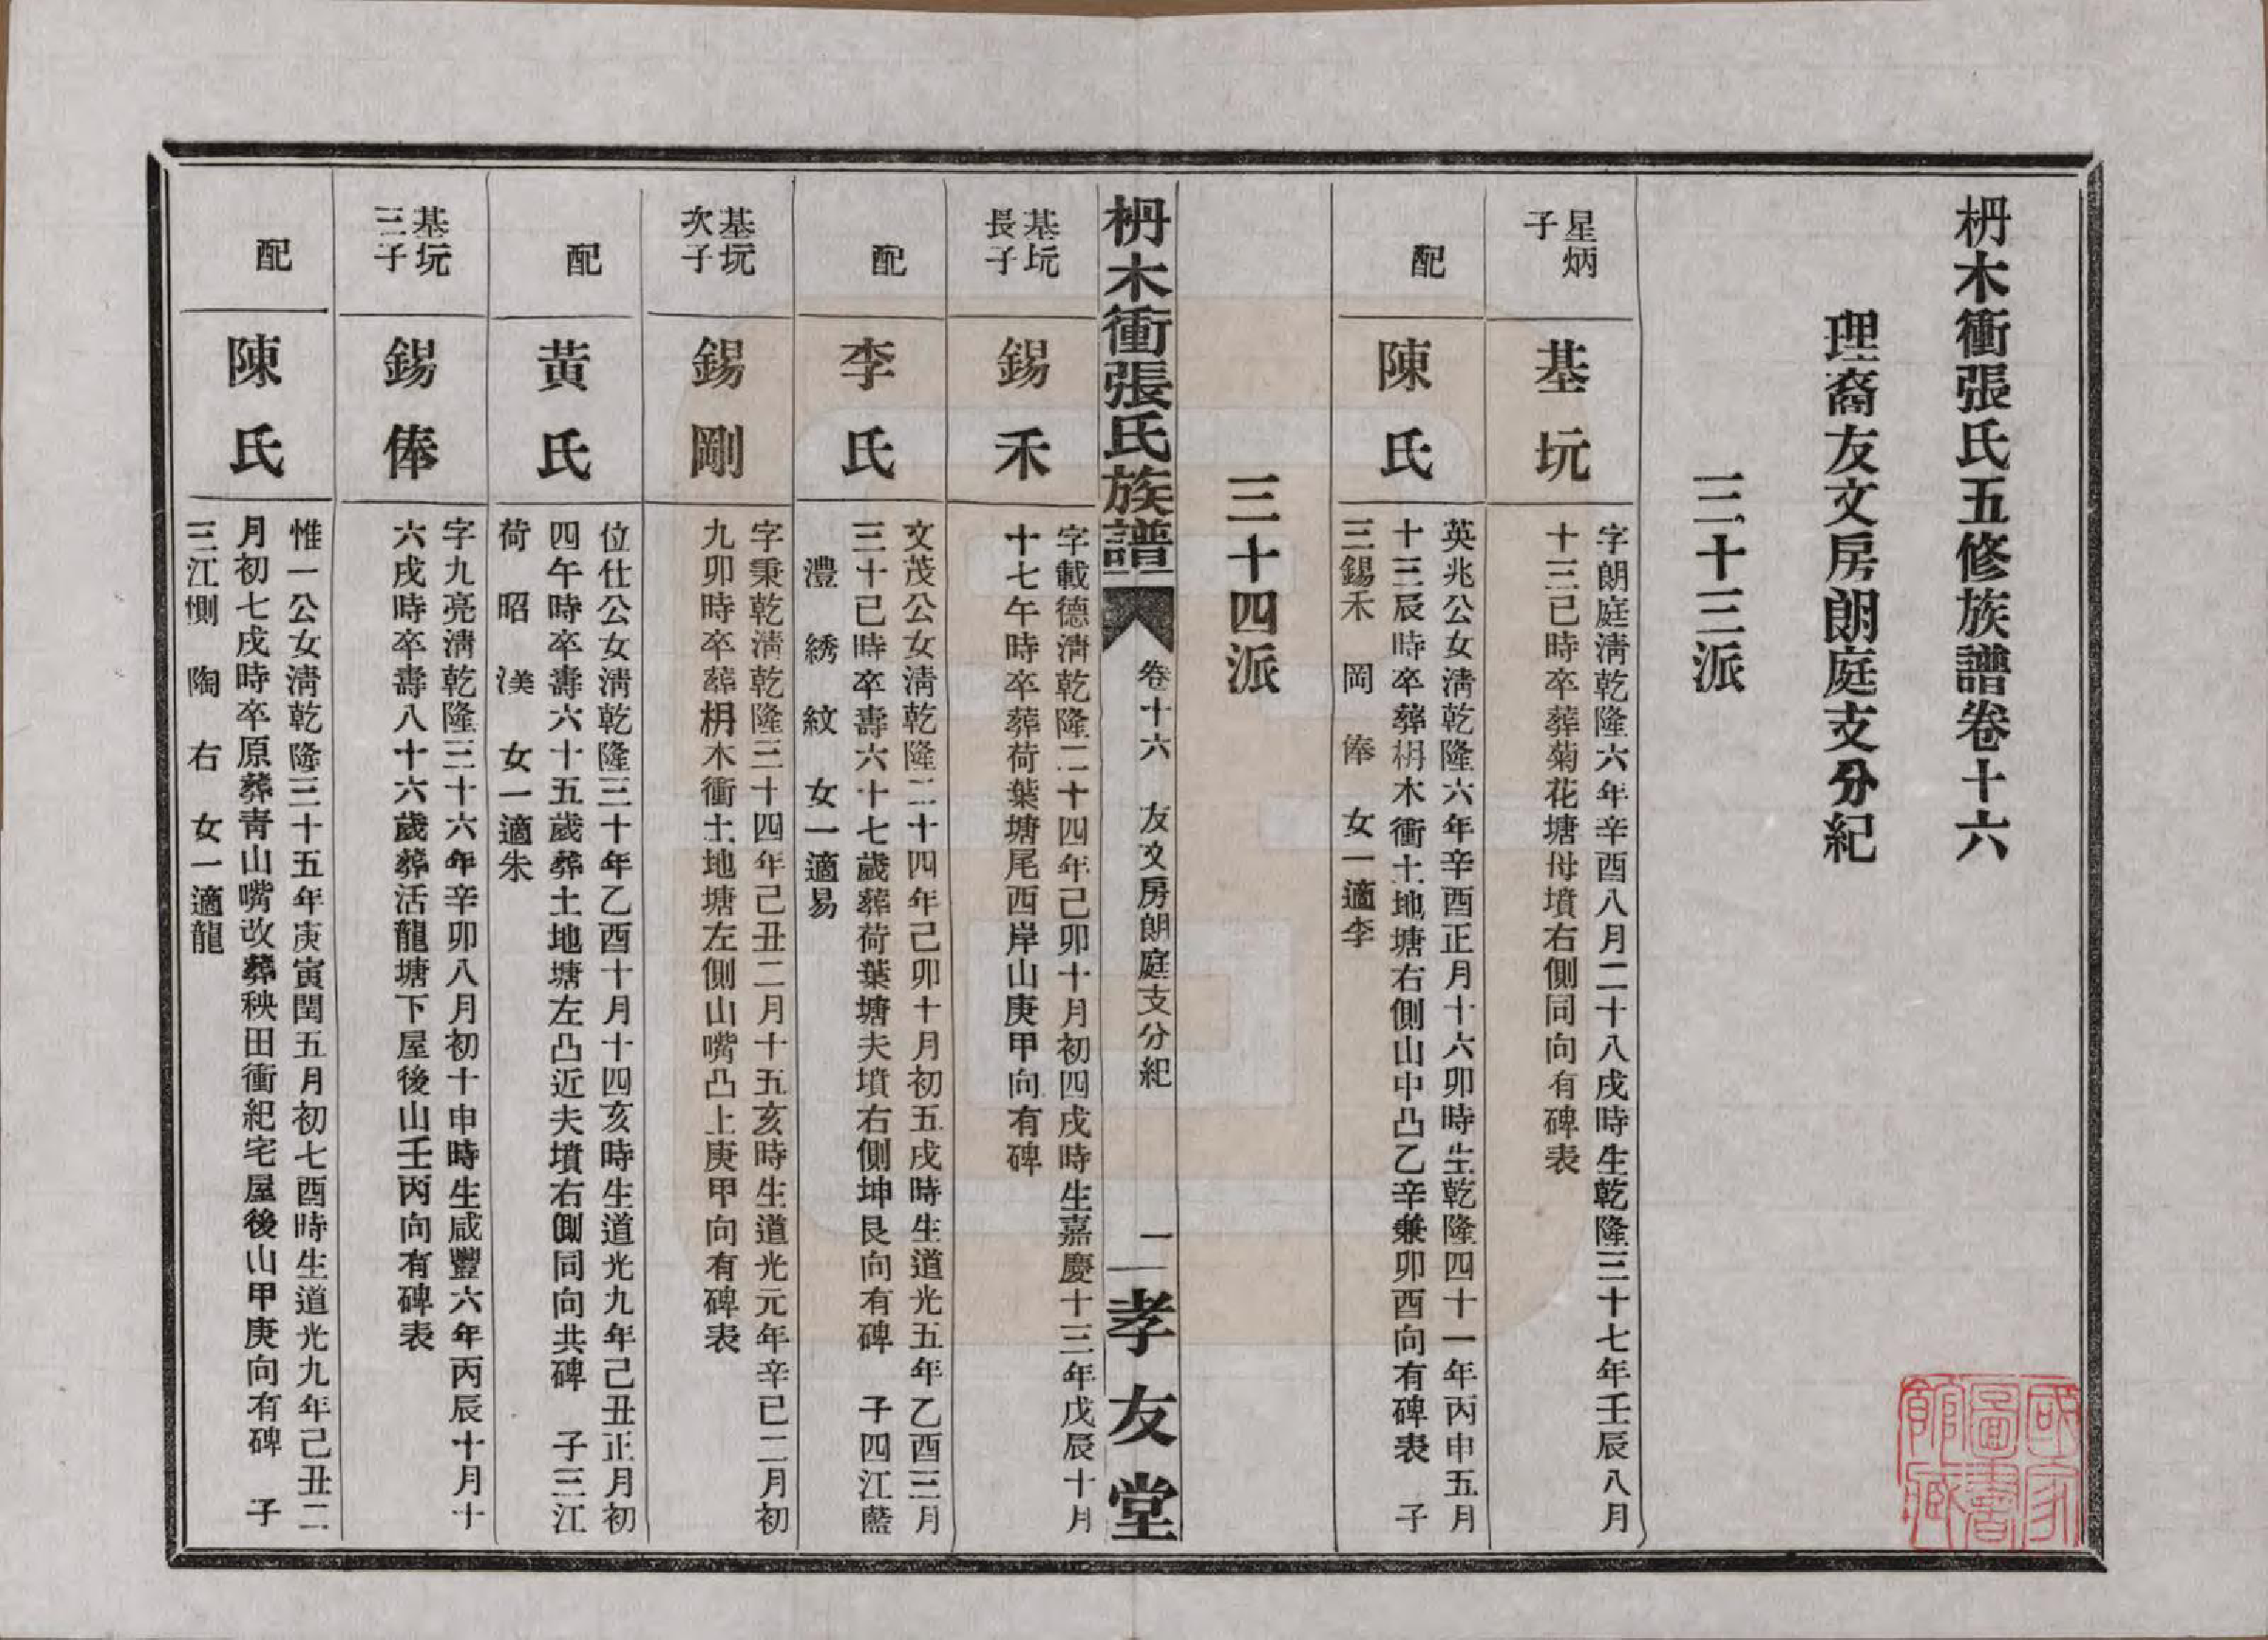 枬木衝張氏五修族譜卷十六
理裔友文房朗庭支分紀
三十三派
星炳子
基玩
字朗庭淸乾隆六年辛酉八月二十八戌時生乾隆三十七年壬辰八月
十三已時卒葬菊花塘母墳右側同向有碑表
配
陳氏
英兆公女淸乾隆六年辛酉正月十六卯時生乾隆四十一年丙申五月
十三辰時卒葬枬木衝土地塘右側山中凸乙辛兼卯酉向有碑表 子
三錫禾 岡 俸 女一適李
三十四派
枬木衝張氏族譜
卷十六 友文房朗庭支分紀
一
孝友堂
基玩長子
錫禾
字載德淸乾隆二十四年己卯十月初四戌時生嘉慶十三年戊辰十月
十七午時卒葬荷葉塘尾西岸山庚甲向有碑
配
李氏
文茂公女淸乾隆二十四年己卯十月初五戌時生道光五年乙酉三月
三十已時卒壽六十七歲葬荷葉塘夫墳右側坤艮向有碑 子四江藍
灃 綉 紋 女一適易
基玩次子
錫剛
字秉乾淸乾隆三十四年己丑二月十五亥時生道光元年辛已二月初
九卯時卒葬枬木衝土地塘左側山嘴凸上庚甲向有碑表
配
黃氏
位仕公女淸乾隆三十年乙酉十月十四亥時生道光九年己丑正月初
四午時卒壽六十五歲葬土地塘左凸近夫墳右側同向共碑 子三江
荷 昭 渼 女一適朱
基玩三子
錫俸
字九亮淸乾隆三十六年辛卯八月初十申時生咸豐六年丙辰十月十
六戌時卒壽八十六歲葬活龍塘下屋後山壬丙向有碑表
配
陳氏
惟一公女淸乾隆三十五年庚寅閏五月初七酉時生道光九年己丑二
月初七戌時卒原葬靑山嘴改葬秧田衝紀宅屋後山甲庚向有碑 子
三江惻 陶 右 女一適龍
國家圖書館藏